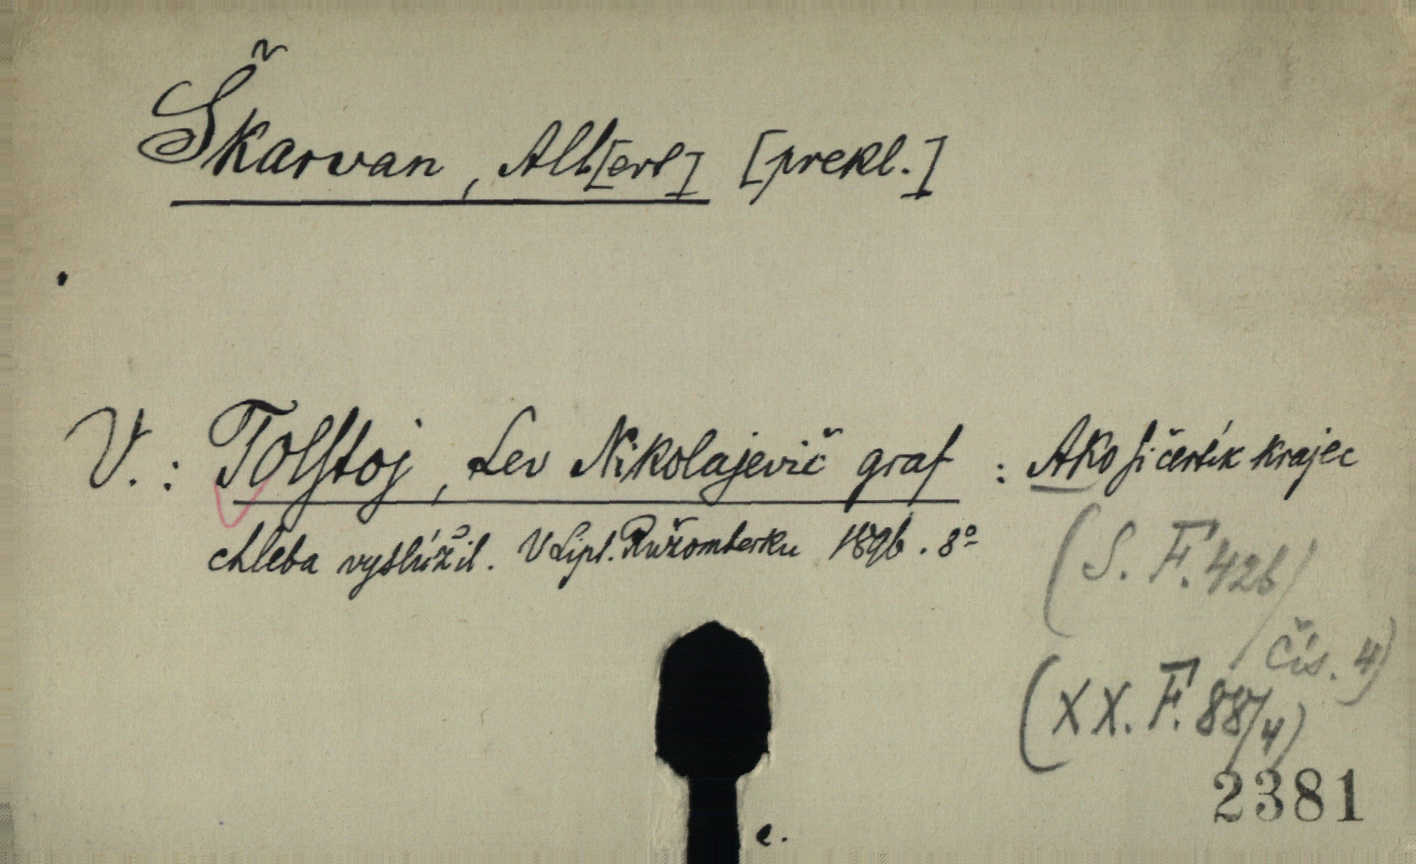 Škarvan, Alb[ert] [prekl.]
V.: Tolstoj, Lev Nikolajevič graf: Ako si čertík krajec
chleba vyslúžil. V Lipt. Ružomberku 1896. 8°
(S. F. 426/
čís. 4)
(XX. F. 88/4)
2381
c.